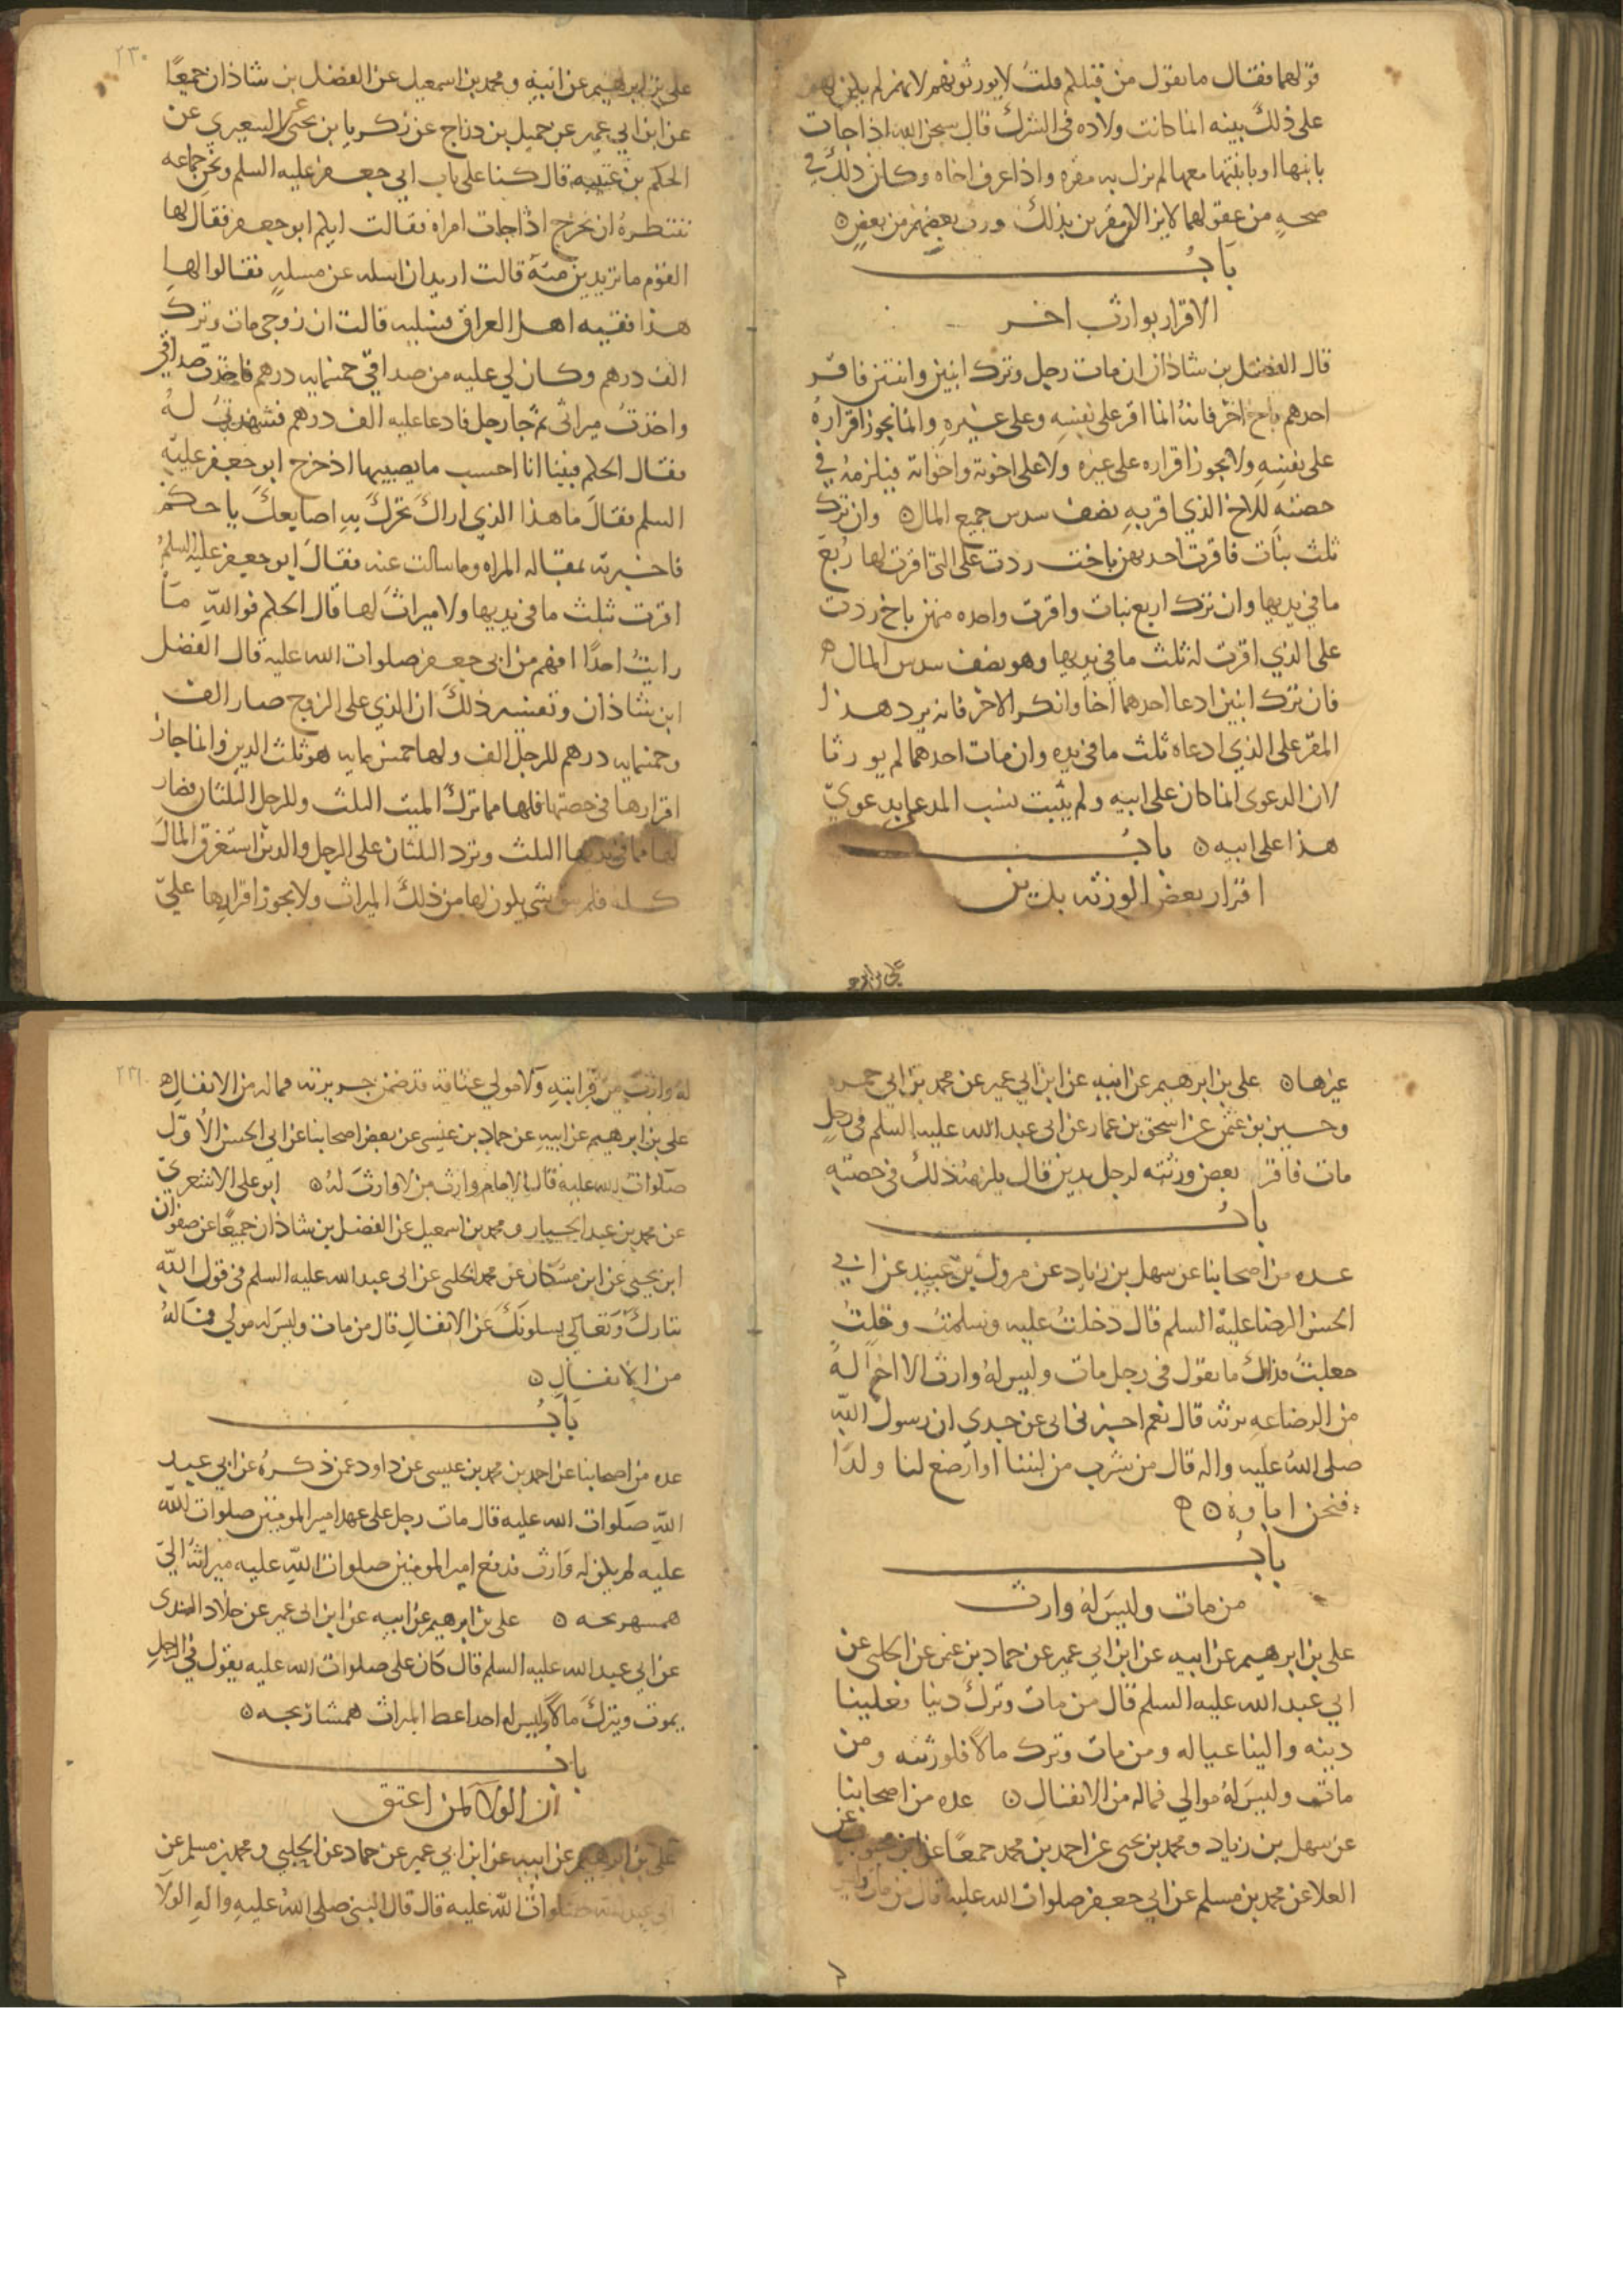 قولهما فقال ما يقول من قبلكم قلت لا يورثونهم لانهم لم يكن لهم
على ذلك بينه انما كانت ولاده فى الشرك قال سبحن الله اذا جات
بابنها او بابنتها معها لم تزل به مقره واذا عرف اخاه وكان ذلك في
صحه من عقولهما لا يزالان مقرين بذلك ورث بعضهم من بعض
باب
الاقرار بوارث اخر
قال الفضل بن شاذان ان مات رجل وترك ابنين وابنتين فاقر
احدهم باخ اخر فانه انما اقر على نفسه وعلى غيره وانما يجوز اقراره
على نفسه ولا يجوز اقراره على غيره ولا على اخوته واخواته فيلزمه في
حصته للاخ الذي اقر به نصف سدس جميع المال وان ترك
ثلث بنات فاقرت احديهن باخت ردت على التى اقرت لها ربع
ما في يديها وان ترك اربع بنات واقرت واحده منهن باخ ردت
على الذي اقرت له ثلث ما في يديها وهو نصف سدس المال
فان ترك ابنين ادعا احدهما اخا وانكر الاخر فانه يرد هذا
المقر على الذي ادعاه ثلث ما فى يده وان مات احدهما لم يورثا
لان الدعوى انما كان على ابيه ولم يثبت نسب المدعا بدعوي
هذا على ابيه باب
اقرار بعض الورثه بدين
على بن ابرهيم
٢٣٠
على بن ابرهيم عن ابيه ومحمد بن اسمعيل عن الفضل بن شاذان جميعا
عن ابن ابي عمير عن جميل بن دراج عن زكريا بن يحيى السعيري عن
الحكم بن عتيبه قال كنا على باب ابي جعفر عليه السلم ونحن جماعه
ننتظره ان يخرج اذ اجات امراه فقالت ايكم ابو جعفر فقال لها
القوم ما تريدين منه قالت اريد ان اسله عن مسله فقالوا لها
هذا فقيه اهل العراق فسليه قالت ان زوجى مات وترك
الف درهم وكان لي عليه من صداقي خمسمايه درهم فاخذت صداقى
واخذت ميراثى ثم جا رجل فادعا عليه الف درهم فشهدت له
فقال الحكم فبينا انا احسب ما يصيبها اذ خرج ابو جعفر عليه
السلم فقال ما هذا الذي اراك تحرك به اصابعك يا حكم
فاخبرته بمقاله المراه وما سالت عنه فقال ابو جعفر عليه السلم
اقرت بثلث ما في يديها ولا ميراث لها قال الحكم فوالله ما
رايت احدا افهم من ابي جعفر صلوات الله عليه قال الفضل
ابن شاذان وتفسير ذلك ان الذي على الزوج صار الف
وخمسمايه درهم للرجل الف ولها خمس مايه هو ثلث الدين وانما جاز
اقرارها في حصتها فلها مما ترك الميت الثلث وللرجل الثلثان فصار
لها مما في يديها الثلث وترد الثلثان على الرجل والدين استغرق المال
كله فلم يبق شي يكون لها من ذلك الميراث ولا يجوز اقرارها على
غيرها على بن ابرهيم عن ابيه عن ابن ابي عمير عن محمد بن ابي حمزه
وحسين بن عثمن عن اسحق بن عمار عن ابى عبد الله عليه السلم فى رجل
مات فاقر بعض ورثته لرجل بدين قال يلزمه ذلك في حصته
باب
عده من اصحابنا عن سهل بن زياد عن مروك بن عبيد عن ابي
الحسن الرضا عليه السلم قال دخلت عليه وسلمت وقلت
جعلت فداك ما تقول في رجل مات وليس له وارث الا اخ له
من الرضاعه يرثه قال نعم اخبرنى ابى عن جدي ان رسول الله
صلى الله عليه واله قال من شرب من لبننا او ارضع لنا ولدا
فنحن اباوه
باب
من مات وليس له وارث
على بن ابرهيم عن ابيه عن ابن ابي عمير عن حماد بن عثمن عن الحلبى عن
ابي عبد الله عليه السلم قال من مات وترك دينا فعلينا
دينه والينا عياله ومن مات وترك مالا فلورثته ومن
مات وليس له موالي فماله من الانفال عده من اصحابنا
عن سهل بن زياد ومحمد بن يحيى عن احمد بن محمد جمعا عن ابن محبوب عن
العلا عن محمد بن مسلم عن ابي جعفر صلوات الله عليه قال من مات وليس
له وارث من قرابته ولا مولي عتاقه قد ضمن جريرته فماله من الانفال
على بن ابرهيم عن ابيه عن حماد بن عيسى عن بعض اصحابنا عن ابي الحسن الاول
صلوات الله عليه قال الامام وارث من لا وارث له ابو على الاشعري
عن محمد بن عبد الجبار ومحمد بن اسمعيل عن الفضل بن شاذان جميعا عن صفوان
ابن يحيى عن ابن مسكان عن محمد الحلبى عن ابى عبد الله عليه السلم في قول الله
تبارك وتعالي يسلونك عن الانفال قال من مات وليس له مولي فماله
من الانفال
باب
عده من اصحابنا عن احمد بن محمد بن عيسى عن داود عمن ذكره عن ابي عبد
الله صلوات الله عليه قال مات رجل على عهد امير المومنين صلوات الله
عليه لم يكن له وارث فدفع امير المومنين صلوات الله عليه ميراثه الى
همسهريحه على بن ابرهيم عن ابيه عن ابن ابى عمير عن خلاد السندى
عن ابي عبد الله عليه السلم قال كان على صلوات الله عليه يقول في الرجل
يموت ويترك مالا وليس له احد اعط الميراث همشاريجه
باب
ان الولا لمن اعتق
على بن ابرهيم عن ابيه عن ابن ابي عمير عن حماد عن الحلبي ومحمد بن مسلم عن
ابي عبد الله صلوات الله عليه قال قال النبى صلى الله عليه واله الولا